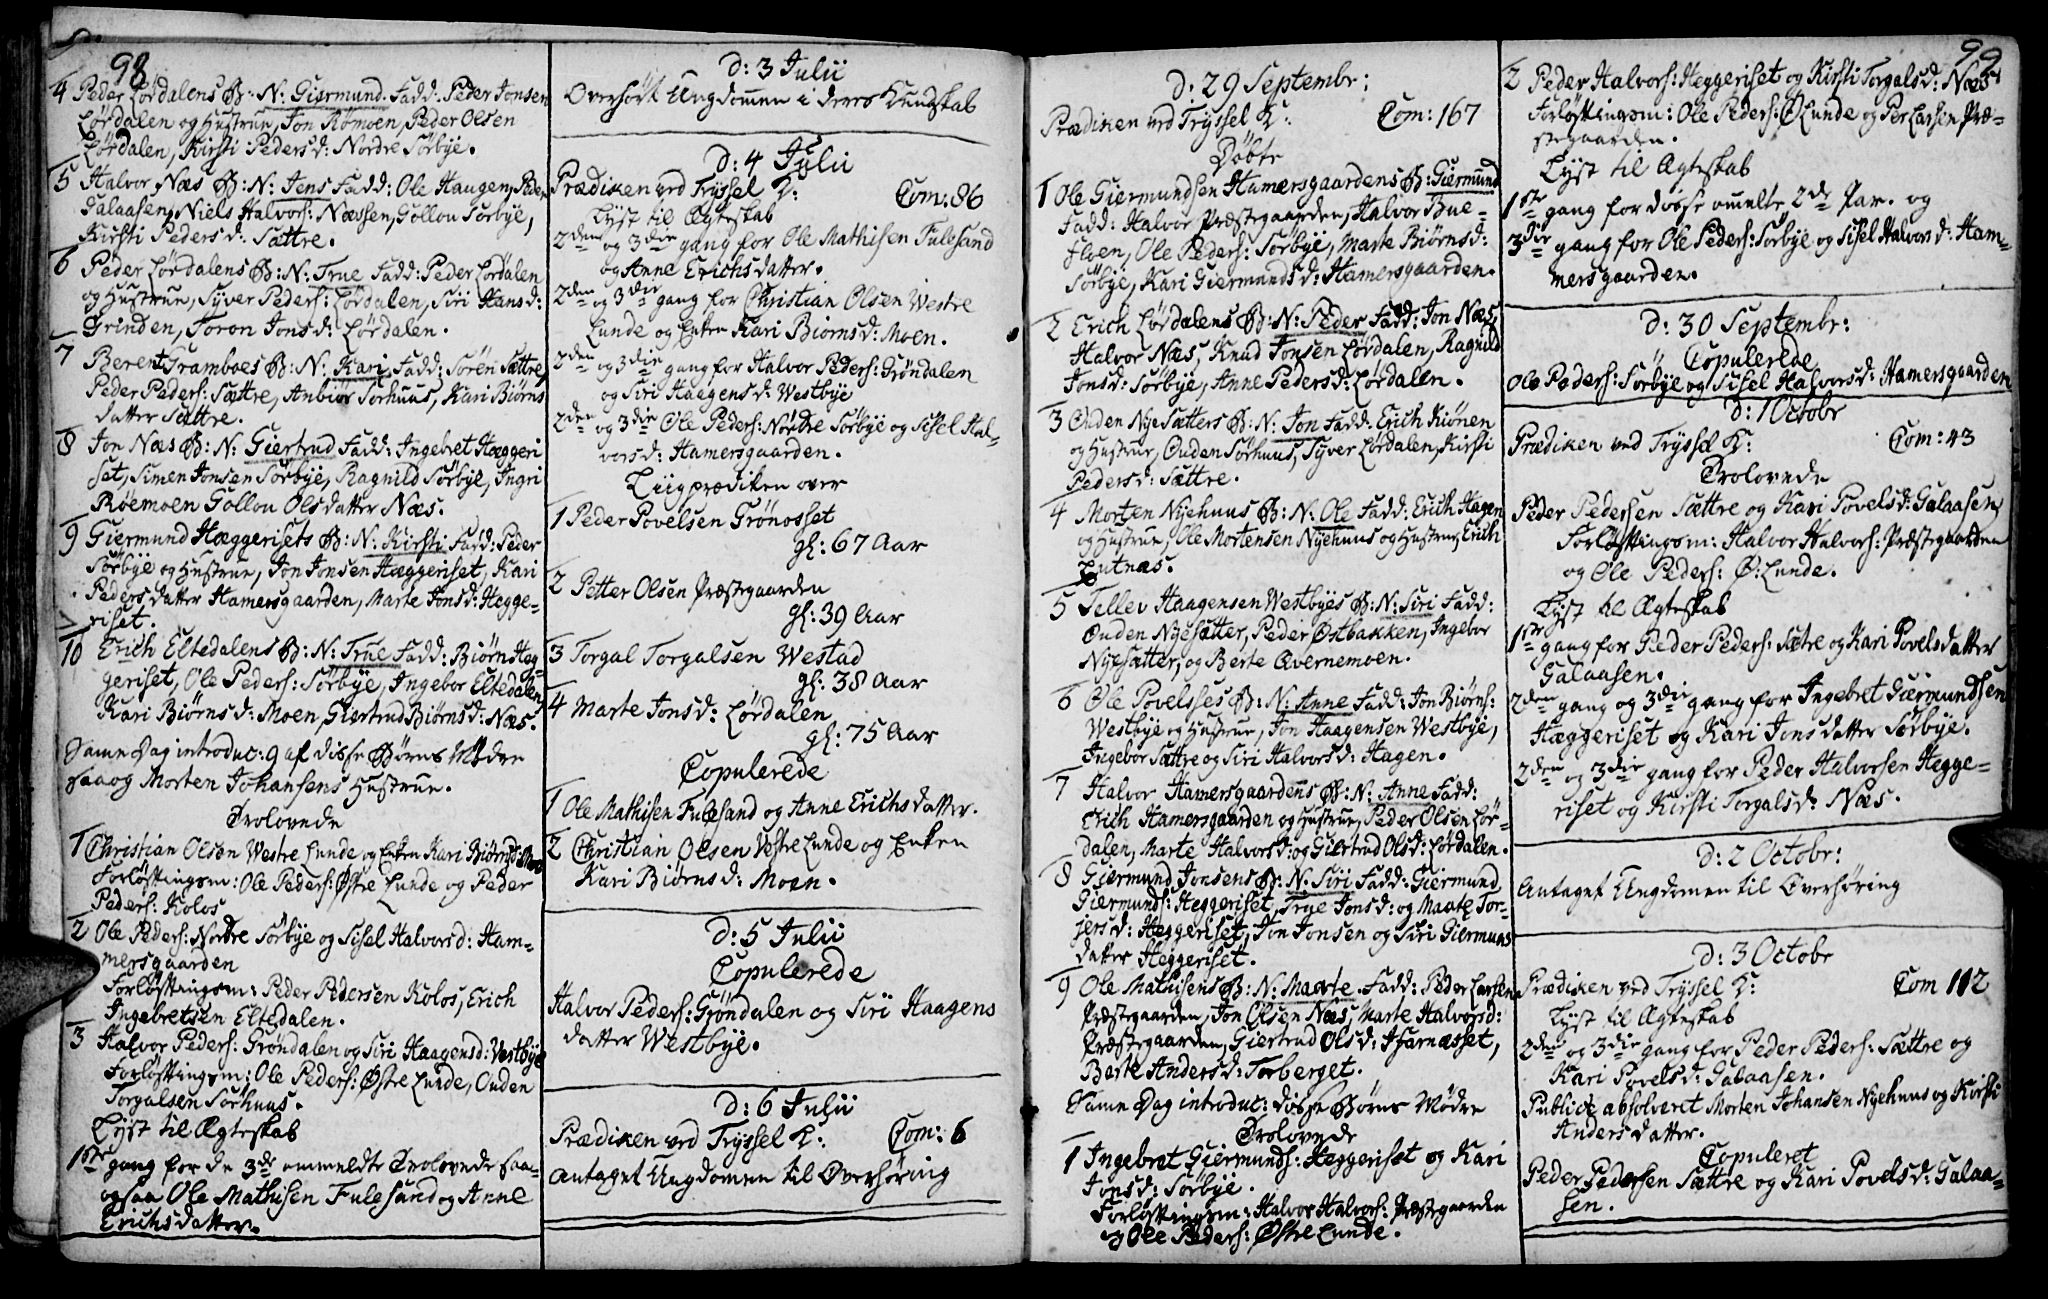 98
4 Peder Lördalens B: N: Giermund. Fadd: Peder Jonsen
Lördalen og Hustrue, Jon Römoen, Peder Olsen
Lördalen, Kirsti Pedersd: Nordre Sörbye.
5 Halvor Næs B: N: Jens Fadd: Ole Haugen, Peder
Galaasen, Niels Halvors: Næssen, Gollou Sörbye,
Kirsti Pedersd: Sættre.
6 Peder Lördalens B: N: True Fadd: Peder Lördalen
og Hustrue, Syver Peders: Lördalen, Siri Hansd:
Grinden, Toron Jonsd: Lördalen.
7 Berent Tramboes B: N: Kari Fadd: Sören Sættre,
Peder Peders: Sættre, Anbiör Sörhuus, Kari Biörns
datter Sættre.
8 Jon Næs B: N: Giertrud Fadd: Ingebret Hæggeri
set, Simen Jonsen Sörbye, Ragnild Sörbye, Ingri
Röemoen Gollou Olsdatter Næs.
9 Giermund Hæggerisets B: N: Kirsti Fadd: Peder
Sörbye og Hustrue, Jon Jonsen Hæggeriset, Kari
Pedersdatter Hamersgaarden, Marte Jonsd: Hegge-
riset.
10 Erich Eltedalens B: N: True Fadd: Biörn Heg-
geriset, Ole Peders: Sörbye, Ingebor Eltedalen,
Kari Biörnsd: Moen, Giertrud Biörnsd: Næs.
Same Dag introduc: 9 af disse Börns Mödre
saa og Morten Johansens Hustrue.
Trolovede
1 Christian Olsen Westre Lunde og Enken Kari Biörnsd: Moen
Forlöftingsm: Ole Peders: Östre Lunde og Peder
Peders: Kolos
2 Ole Peders: Nordre Sörbye og Sisel Halvorsd: Ham-
mersgaarden
Forlöftingsm: Peder Pedersen Kolos, Erich
Ingebretsen Eltedalen.
3 Halvor Peders: Gröndalen og Siri Haagensd: Westbye
Forlöftingsm: Ole Peders: Östre Lunde, Ouden
Torgalsen Sörhuus.
Lyst til Ægteskab
1ste gang for de 3de ommeldte Trolovede saa-
ogsaa Ole Mathisen Fulesand og Anne
Erichsdatter.
d: 3 Julii
Overhört Ungdommen i deres Kundskab
d: 4 Julii
Prædiken ved Tryssel K: Com: 86
Lyst til Ægteskab
2den og 3die gang for Ole Mathisen Fulesand
og Anne Erichsdatter.
2den og 3die gang for Christian Olsen Westre
Lunde og Enken Kari Biörnsd: Moen.
2den og 3die gang for Halvor Peders: Gröndalen
og Siri Haagensd: Westbye
2den og 3die Ole Peders: Nordre Sörbye og Sisel Hal-
vorsd: Hamersgaarden.
Liigprædiken over
1 Peder Povelsen Grönosset
gl: 67 Aar
2 Petter Olsen Præstegaarden
gl: 39 Aar
3 Torgal Torgalsen Westad
gl: 38 Aar
4 Marte Jonsd: Lördalen
gl: 75 Aar
Copulerede
1 Ole Mathisen Fulesand og Anne Erichsdatter.
2 Christian Olsen Vestre Lunde og Enken
Kari Biörnsd: Moen.
d: 5 Julii
Copulerede
Halvor Peders: Gröndalen og Siri Haagens
datter Westbye.
d: 6 Julii
Prædiken ved Tryssel K: Com: 6
Antaget Ungdomen til Overhöring
99
d: 29 Septembr:
Prædiken ved Tryssel K: Com: 167
Döbte
1 Ole Giermundsen Hamersgaardens B: Giermund
Fadd: Halvor Præstegaarden, Halvor Bue-
floen, Ole Peders: Sörbye, Marte Biörnsd:
Sörbye, Kari Giermundsd: Hamersgaarden.
2 Erich Lördalens B: N: Peder Fadd: Jon Næs,
Halvor Næs, Knud Jonsen Lördalen, Ragnild
Jonsd: Sörbye, Anne Pedersd: Lördalen.
3 Ouden Nye Sætters B: N: Jon Fadd: Erich Kiönen
og Hustrue, Ouden Sörhuus, Syver Lördalen, Kirsti
Pedersd: Sættre.
4 Morten Nyehuus B: N: Ole Fadd: Erich Hagen
og Hustrue, Ole Mortensen Nyehuus og Hustrue, Erich
Lutnæs.
5 Tellev Haagensen Westbyes B: N: Siri Fadd:
Ouden Nyesætter, Peder Östbakken, Ingebor
Nyesætter, og Berte Avernemoen.
6 Ole Povelsses B: N: Anne Fadd: Jon Biörns:
Westbye og Hustrue, Jon Haagensen Westbye,
Ingebor Sættre og Siri Halvorsd: Hagen.
7 Halvor Hamersgaardens B: N: Anne Fadd:
Erich Hamersgaarden og Hustrue, Peder Olsen Lör-
dalen, Marte Halvorsd: og Giertrud Olsd: Lördalen.
8 Giermund Jonsens B: N: Siri Fadd: Giermund
Giermunds: Heggeriset, True Jonsd: og Marte Tor-
jersd: Heggeriset, Jon Jonsen og Siri Giermuns
datter Heggeriset.
9 Ole Mathisens B: N: Marte. Fadd: Peder Larsen
Præstegaarden, Jon Olsen Næs, Marte Halvorsd:
Præstegaarden, Giertrud Olsd: Hiarnæsset,
Berte Andersd: Torberget.
Same Dag introduc: disse Börns Mödre
Trolovede
1 Ingebret Giermunds: Heggeriset og Kari
Jonsd: Sörbye.
Forlöftingsm: Halvor Halvors: Præstegaarden
og Ole Peders: Östre Lunde.
2 Peder Halvors: Heggeriset og Kirsti Torgalsd: Næs
Forlöftingsm: Ole Peders: Ö Lunde og Per Larsen Præ-
stegaarden.
Lyst til Ægteskab
1ste gang for disse omelte 2de Par. og
3die gang for Ole Peders: Sörbye og Sisel Halvorsd: Ham-
mersgaarden.
d: 30 Septembr:
Copulerede
Ole Peders: Sörbye og Sisel Halvorsd: Hamersgaarden
d: 1 Octobr
Prædiken ved Tryssel K: Com: 43
Trolovede
Peder Pedersen Sættre og Kari Povelsd: Galaasen
Forlöftingsm: Halvor Halvors: Præstegaarden
og Ole Peders: Ö: Lunde.
Lyst til Ægteskab
1ste gang for Peder Peders: Sætre og Kari Povelsdatter
Galaasen.
2den gang og 3die gang for Ingebret Giermundsen
Hæggeriset og Kari Jonsdatter Sörbye.
2den og 3die gang for Peder Halvorsen Hegge-
riset og Kirsti Torgalsd: Næs.
d: 2 Octobr:
Antaget Ungdomen til Overhöring
d: 3 Octobr
Prædiken ved Tryssel K: Com 112
Lyst til Ægteskab
2den og 3die gang for Peder Peders: Sættre og
Kari Povelsd: Galaasen.
Publicè absolveret Morten Johansen Nyehuus og Kirsti
Andersdatter.
Copuleret
Peder Pedersen Sættre og Kari Povelsd: Galaa-
sen.